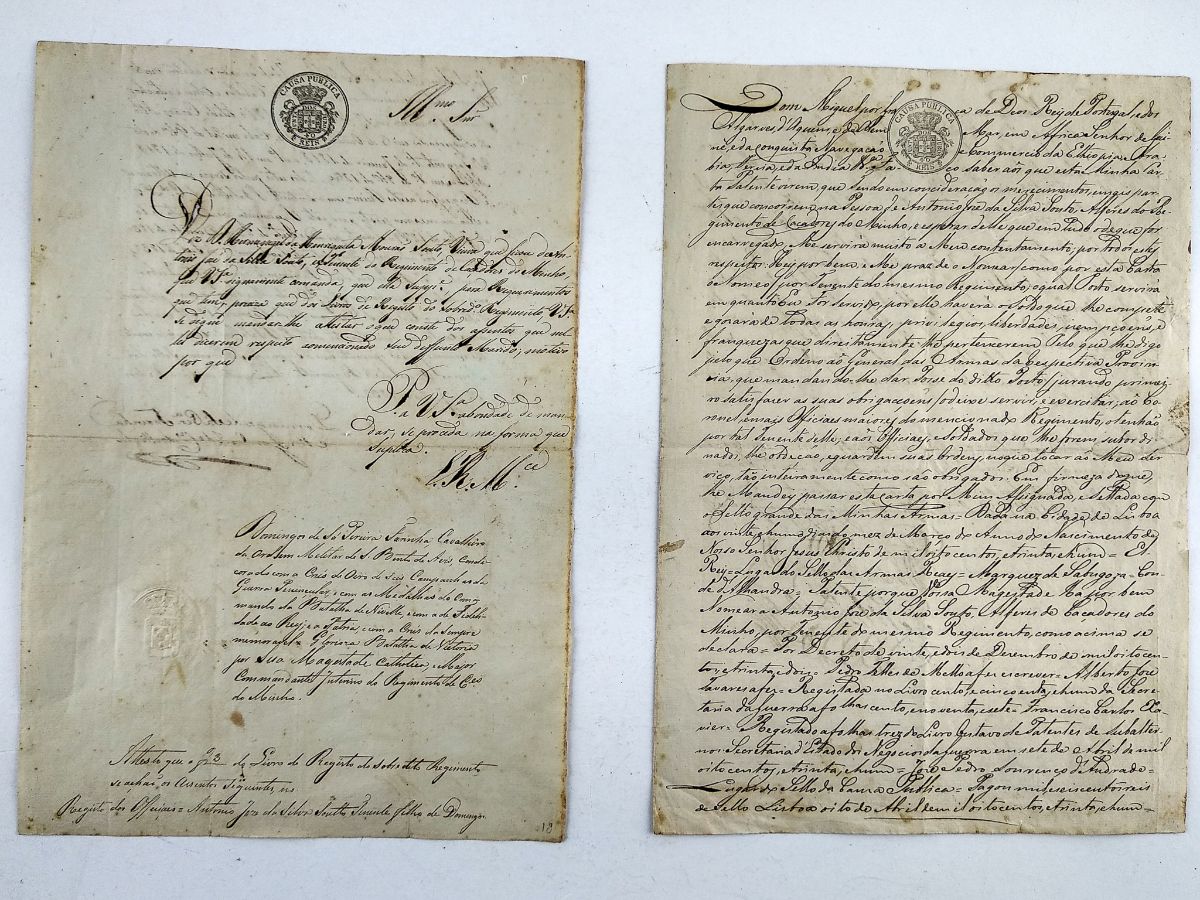 CAUSA PUBLICA
REIS
Snr
Diz
Souto, Viuva que ficou de An-
tonio José da Silva Souto, Tenente do Regimento de Caçadores do Minho,
que V.Sª. dignamente comanda, que
que dos Livros de Registo do Sobredº. Regimento V.Sª
Se digne mandar lhe atestar o que conste dos assentos que nel-
les dicerem respeito
por que
P. a V.Sª a bondade de man-
dar, se proceda na forma que
Suplica.
E. R. M.ce
Domingos de Sá Pereira Farinha Cavalleiro
da Ordem Militar de S. Bento de Aviz, Conde-
corado com a Cruz de Oiro de Seis Campanhas da
Guerra Peninsular, com as Medalhas do Com-
mando da Batalha de Nivelle, e com a de Fideli-
dade ao Rey, e a Patria, e com a Cruz da Sempre
memoravel e Gloriosa Batalha de Victoria
por Sua Magestade Catholica, Major
Commandante Interino do Regimento de Ces
do Minho.
Attesto que a do Livro do Registo do sobredito Regimento
se achão os Assentos Seguintes
Registo dos Officiaes = Antonio Joze da Silva Souto Tenente filho de Domingos
CAUSA PUBLICA
40
REIS
Dom Miguel por ca de Deos Rey de Portugal, e dos
Algarves, d'Aquem, e da Mar, em Africa Senhor de Gui-
né, e da Conquista Navegação Commercio da Ethiopia Ara-
bia, Percia, e da India &ª. ço saber aos que esta Minha Car-
ta Patente virem, que tendo em concideração os merecimentos, e mais par-
tes que concorrem na Pessoa de Antonio Joze da Silva Souto, Alferes do Re-
gimento de Cacadores do Minho, e esperar delle que em tudo o de que for
encarregado, Me servira muito a Meu contentamento; por todos estes
respeitos: Hey por bem, e Me praz de o Nomear (como por esta Carta
o Nomeo) por Tenente do mesmo Regimento; o qual Posto servira
em quanto Eu For servido, e por elle haverá o Soldo que lhe competir
e gozara de todas as honras, privilegios, liberdades, izempcoens, e
franquezas que direitamente lhe pertencerem Pelo que lhe digo
pelo que Ordeno ao General das Armas da respectiva Provin-
cia, que mandando-lhe dar Posse do ditto Posto (jurando primei-
ro satisfazer as suas obrigaçoens) o deixe servir, e exercitar; ao Co-
ronel e mais Officiaes maiores do mencionado Regimento, o tenhão
por tal Tenente delle, e aos Officiaes, e Soldados que lhe forem subordi-
nados, lhe obdeção, e guardem suas Ordens, no que tocar ao Meu Ser-
viço, tão inteiramente como são obrigados. Em firmeza do que,
lhe Mandey passar esta carta por Mim Assignada, e Sellada com
o Sello grande das Minhas Armas = Dada na Cidade de Lisboa
aos vinte, e hum dias do mez de Março do Anno do Nascimento de
Nosso Senhor Jesus Christo de mil oito centos, e trinta, e hum = El
Rey = Lugar do Sello das Armas Reaes = Marquez de Sabugoza = Con-
de d'Alhandra = Patente porque Vossa Magestade Há por bem
Nomear a Antonio Joze da Silva Souto, Alferes de Caçadores do
Minho, por Tenente do mesmo Regimento, como acima se
declara = Por Decreto de vinte, e dois de Dezembro de mil oito cen-
tos, e trinta, = Pedro Telles de Mello a fez escrever = Alberto Joze
Tavares a fez = Registada no Livro cento, e cincoenta, e hum da Secre-
taria da Guerra a folhas cento, e noventa, e sete = Francisco Carlos
Registado a folhas trez do Livro Outavo de Patentes de Subalter-
nos Secretaria d'Estado dos Negocios da Guerra em sete de Abril de mil
oito centos, e trinta, e hum = Pedro Lourenço d'Andrade =
Lugar do Sello da Causa Publica = Pagou mil e seiscentos reis
de Sello Lisboa oito de Abril de mil oito centos, e trinta, e hum =